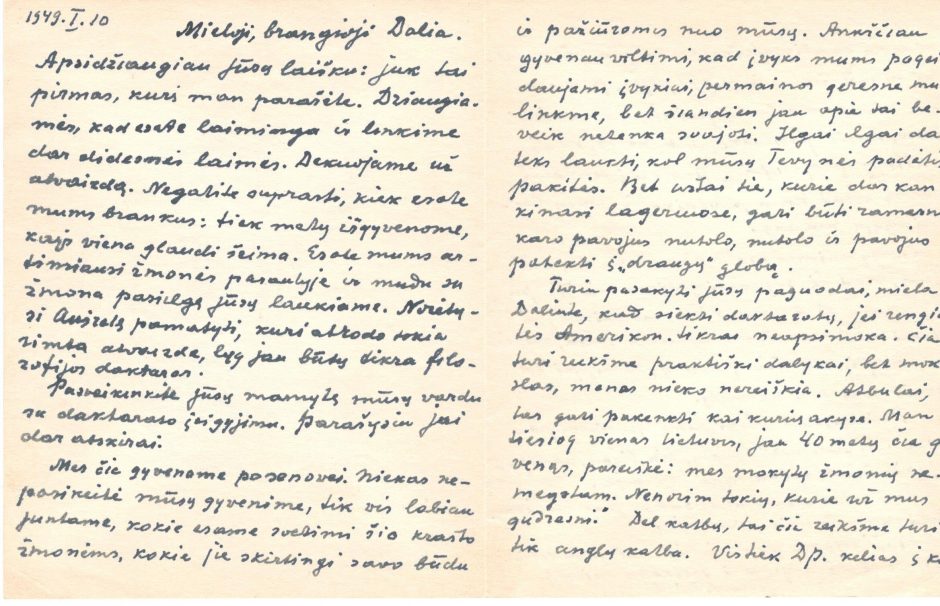 1949.I.10
Mieloji, brangioji Dalia.
Apsidžiaugiau Jūsų laišku: juk tai
pirmas, kurį man parašėte. Džiaugia-
mės, kad esate laiminga ir linkime
dar didesnės laimės. Dekuojame už
atvaizdą. Negalite suprasti, kiek esate
mums brankus: tiek metų išgyvenome,
kaip viena glaudi šeima. Esate mums ar-
timiausi žmonės pasaulyje ir mudu su
žmona pasiilgę jūsų laukiame. Norėtų-
si Aušrelę pamatyti, kuri atrodo tokia
rimta atvaizde, lyg jau būtų tikra filo-
zofijos daktaras.
Pasveikinkite Jūsų mamytę mūsų vardu
su daktarato įsigyjimu. Parašysiu jai
dar atskirai.
Mes čia gyvename posenovei. Niekas ne-
pasikeitė mūsų gyvenime, tik vis labiau
juntame, kokie esame svetimi šio krašto
žmonėms, kokie jie skirtingi savo būdu
ir pažiūromis nuo mūsų. Ankščiau
gyvenau viltimi, kad įvyks mums pagei
daujami įvykiai, permainos geresne mu
linkme, bet šiandien jau apie tai be-
veik netenka svajoti. Ilgai ilgai da
teks laukti, kol mūsų Tėvynės padėtis
pakitės. Bet užtai tie, kurie dar kan
kinasi lageriuose, gali būti ramesni
karo pavojus nutolo, nutolo ir pavojus
patekti į „draugų" globą.
Turiu pasakyti jūsų paguodai, miela
Daliute, kad siekti daktaratų, jei rengia
tės Amerikon, tikrai neapsimoka. Čia
turi reikšmę praktiški dalykai, bet mok
slas, menas nieko nereiškia. Atbulai,
tas gali pakenkti kai kurių akyse. Man
tiesiog vienas lietuvis, jau 40 metų čia g
venąs, pareiškė: mes mokytų žmonių ne-
megstam. Nenorim tokių, kurie už mus
gudresni." Del kalbų, tai čia reikšmę turi
tik anglų kalba. Vistiek D.P. kelias į